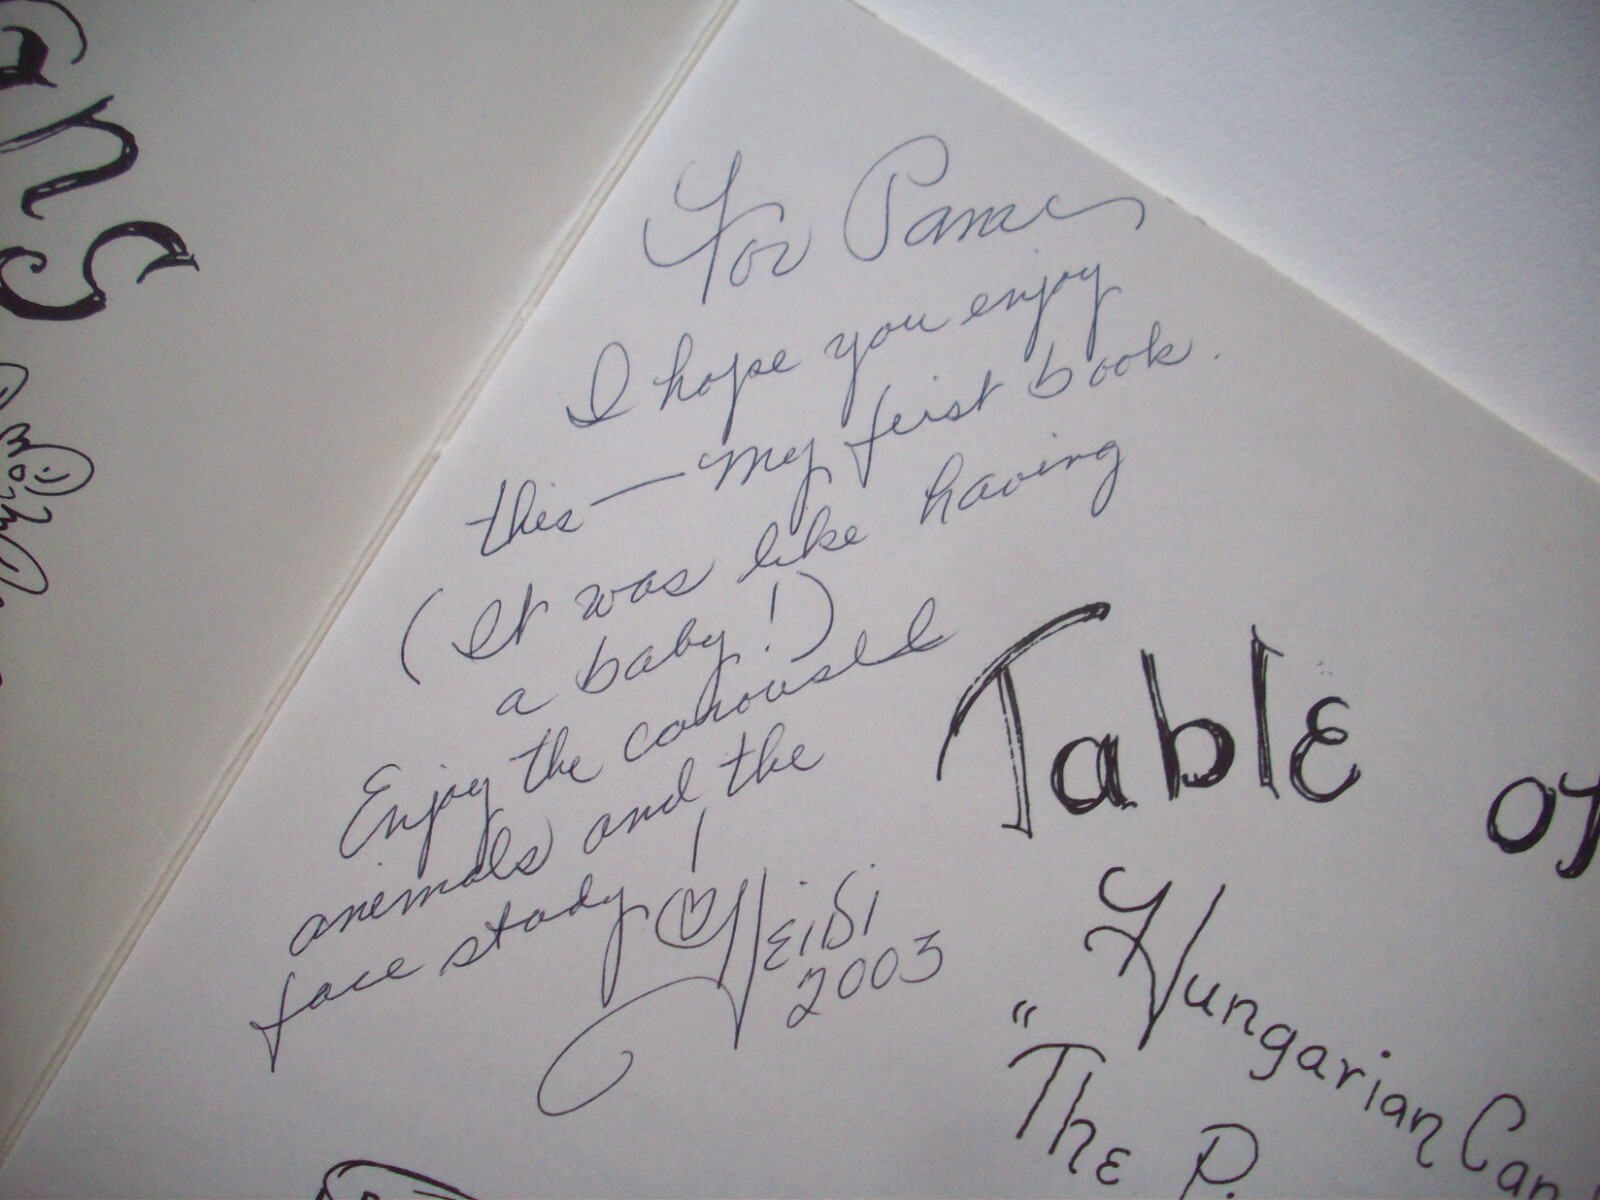 ans
For Pam
I hope you enjoy
this — My first book.
(It was like having
a baby!)
Enjoy the carousel
animals and the
face study!
Heidi
2003
Table of
Hungarian Can
"The P.